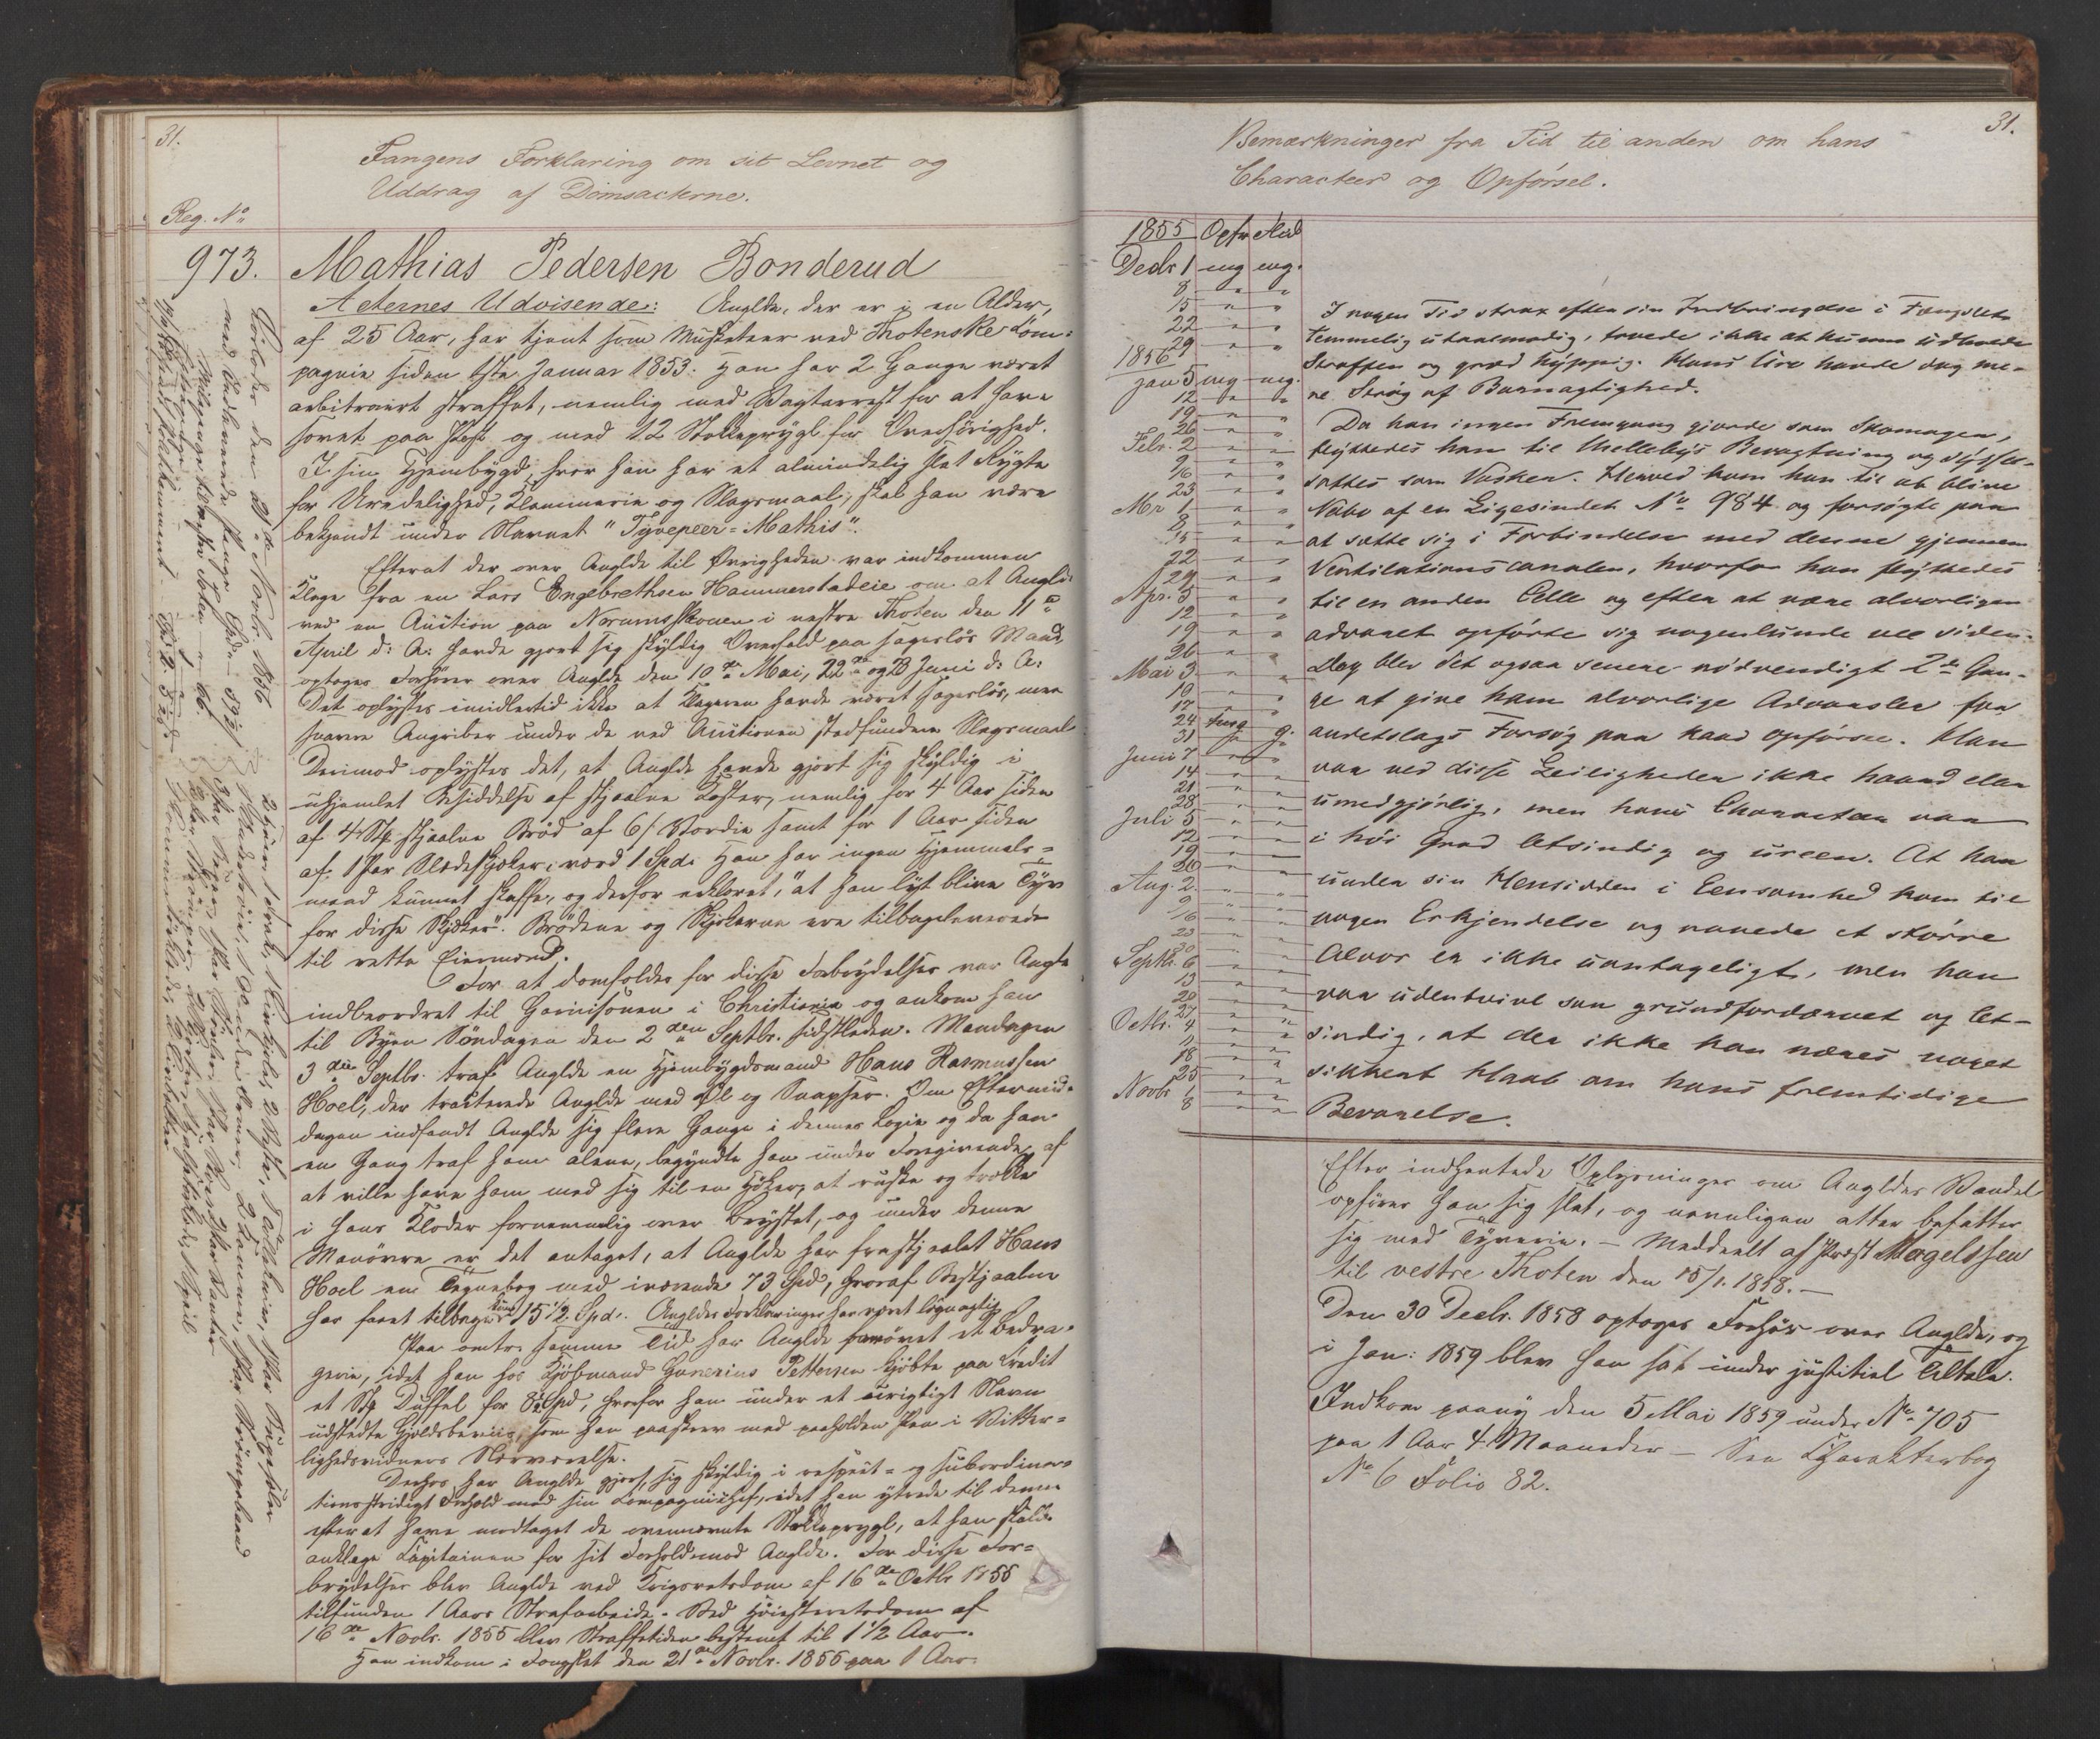 31.
Fangens Forklaring om sit Levnet og
Uddrag af Domsacterne.
Reg. No
973. Mathias Pedersen Bonderud
Acternes Udvisende: Anglde, der er i en Alder,
af 25 Aar, har tjent som Musketeer ved Thotenske Com=
pagnie siden 1ste Januar 1853: Han har 2 Gange været
arbitrairt straffet, nemlig med Vagtarrest for at have
sovet paa Post og med 12 Stokkeprygl for Overhørighed.
I sin Hjembygd, hvor han har et almindelig slet Rygte
for Uredelighed, Klammerie og Slagsmaal, skal han være
bekjendt under Navnet "Tyvepeer=Mathis".
Efterat der over Anglde til Øvrigheden var indkommen
Klage fra en Lars Engebrethsen Hammerstadeie om at Anglde
ved en Auction paa Norumsskoven i vestre Thoten den 11te
April d: A: havde gjort sig skyldig Overfald paa sagesløs Mand,
optoges Forhører over Anglde den 10de Mai, 22de og 28 Juni d: A:
Det oplystes imidlertid ikke at Klageren havde været sagesløs, men
snarere Angriber under de ved Auctionen stedfundne Slagsmaal
Derimod oplystes det, at Anglde havde gjort sig skyldig i
uhjemlet Besiddelse af stjaalne Koster, nemlig for 4 Aar siden
af 4 Stk stjaalne Brød af 6/ Værdie samt for 1 Aar siden
af 1 Par Slædeskjoker, værd 1 Spd. Han har ingen Hjemmels=
mand kunnet skaffe, og derfor erklæret, "at han lyst blive Tyv
for disse Stykker". Brødene og Skjokerne ere tilbageleverede
til rette Eiermænd.
For at domfældes for disse Forbrydelser var Anglde
indbeordret til Garnisonen i Christiania og ankom han
til Byen Søndagen den 2den Septbr. sidstleden. Mandagen
3die Septbr. traf Anglde en Hjembygdsmand Hans Rasmussen
Hoel, der tracterede Anglde med Øl og Snapser. Om Eftermid=
dagen indfandt Anglde sig flere Gange i dennes Logie og da han
en Gang traf ham alene, begyndte han under Foregivende af
at ville have ham med sig til en Høker, at ruske og trække
i hans Klæder fornemmelig over Brystet, og under denne
Manøvre er det antaget, at Anglde har frastjaalet Hans
Hoel en Tegnebog med iværende 73 Spd, hvoraf Bestjaalne
har faaet tilbage kun 15 1/2 Spd. Angldes Forklaringer har været løgnagtig
Paa omtr. samme Tid har Anglde forøvet et Bedra=
gerie, idet han hos Kjøbmand Gunerius Pettersen kjøbte paa Credit
et Stk Duffel for 8 Spd, hvorfor han under et urigtigt Navn
udstedte Gjeldsbeviis, som han paaskrev med paaholden Pen i Vitter=
lighedsvidners Nærværelse.
Derhos har Anglde gjort sig skyldig i respect= og subordina=
tionsstridigt Forhold mod sin Compagniechef, idet han ytrede til denne
efterat have modtaget de ovennævnte Stokkeprygl, at han skulde
anklage Capitainen for sit Forhold mod Anglde. For disse For=
brydelser blev Anglde ved Krigsretsdom af 16de Octbr 1855
tilfunden 1 Aars Strafarbeide. Ved Høiesteretsdom af
16de Novbr. 1855 blev Straffetiden bestemt til 1 1/2 Aar.
Han indkom i Fængslet den 21de Novbr. 1855 paa 1 Aar.
31.
Bemærkninger fra Tid til anden om hans
Characteer og Opførsel.
1855 Opfør Flid
Decbr 1 mg mg.
8 " "
15 " "
22 " "
29 " "
1856
Jan 5 mg mg.
12 " "
19 " "
26 " "
Febr. 2 " "
9 " "
16 " "
23 " "
Mr 1 " "
8 " "
15 " "
22 " "
29 " "
Apr. 5 " "
12 " "
19 " "
26 " "
Mai 3 " "
10 " "
17 " "
24 " "
31 " g.
Juni 7 " "
14 " "
21 " "
28 " "
Juli 5 " "
12 " "
19 " "
26 " "
Aug. 2 " "
9 " "
16 " "
23 " "
30 " "
Septbr. 6 " "
13 " "
20 " "
27 " "
Octbr. 4 " "
11 " "
18 " "
25 " "
Novbr 1 " "
8 " "
I nogen Tid strax efter sin Indbringelse i Fængslet
temmelig utaalmodig, troede ikke at kunne udholde
Straffen og græd hyppig. Hans Sind havde dog me-
re Strøg af Barnagtighed.
Da han ingen Fremgang gjorde som Skomager,
flyttedes han til Mellebys Bevogtning og syssel-
sattes som Vasker. Herved kom han til at blive
Nabo af en Ligesindet No 984 og forsøgte paa
at sætte sig i Forbindelse med denne gjennem
Ventilationscanalen, hvorfor han flyttedes
til en anden Celle og efter at være alvorligen
advaret opførte sig nogenlunde vel siden.
Dog blev det ogsaa senere nødvendigt 2de Gan-
ge at give ham alvorlige Advarsler for
andetslags Forsøg paa kaad Opførsel. Han
var ved disse Leiligheder ikke haard eller
umedgjørlig, men hans Character var
i høi Grad letsindig og ureen. At han
under sin Hensidden i Eensomhed kom til
nogen Erkjendelse og navnlig et større
Alvor er ikke uantageligt, men han
var udentvivl saa grundfordærvet og let-
sindig, at der ikke kan næres noget
sikkert Haab om hans fremtidige
Bevarelse.
Efter indhentede Oplysninger om Angldes Vandel
opfører han sig slet, og navnligen atter befatter
sig med Tyverie. – Meddeelt af Præst Magelssen
til vestre Thoten den 15/1. 1858. –
Den 30 Decbr. 1858 optoges Forhør over Anglde, og
i Jan: 1859 blev han sat under justitiel Tiltale.
Indkom paany den 5 Mai 1859 under No 705
paa 1 Aar 4 Maaneder – See Charakterbog
No 6 Folio 82.